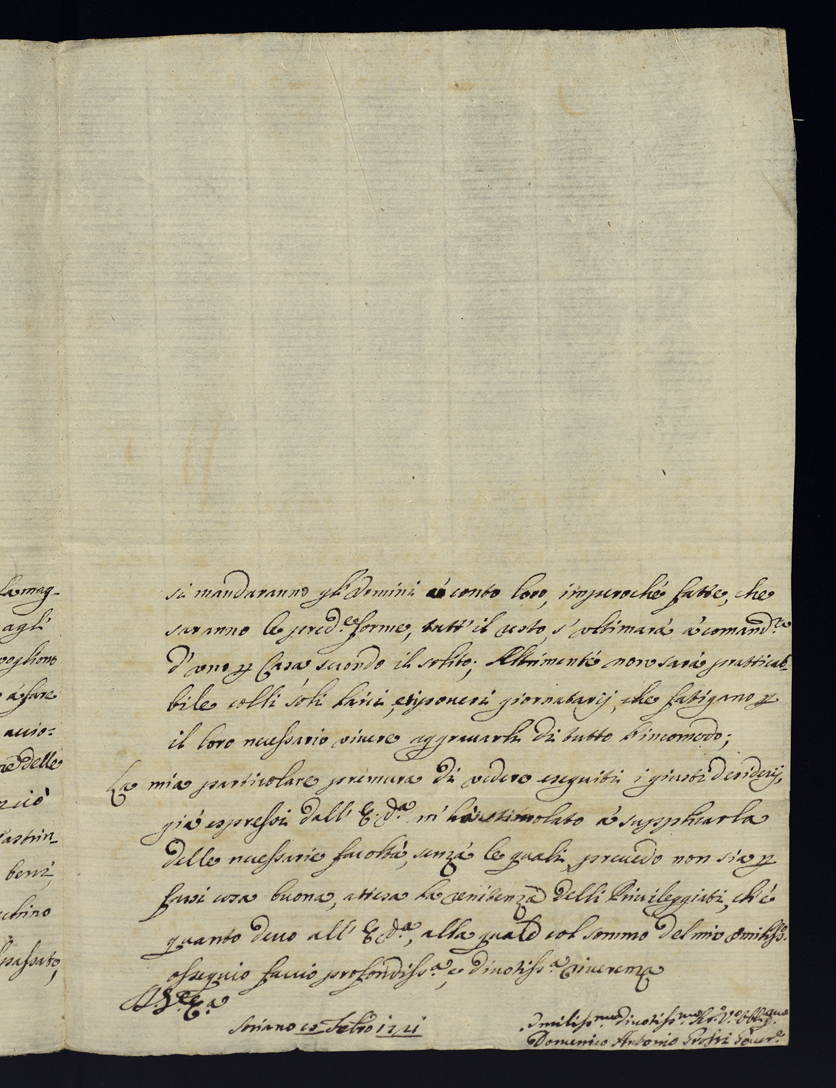 la mag-
agli
vogliono
à fare
accio-
delle
bensì
passato,
si mandaranno gl'Uomini à conto loro, imperochè fatte, che
saranno le pred.e forme, tutt'il resto s'ultimarà à comand.ta
d'uno p Casa secondo il solito; Altrimente non sarà pratticab-
bile colli soli laici, e poveri giornatarij, che fatigano p
il loro necessario vivere aggravarli di tutto l'incomodo;
La mia particolare premura di vedere eseguiti i giusti desiderij,
già espressi dall'E. V.a m'hà stimolato à supplicarla
delle necessarie facoltà, senza le quali prevedo non sia p
farsi cosa buona, attesa la renitenza delli Privileggiati, ch'è
quanto devo all'E. V.a, alla quale col sommo del mio umiliss.o
ossequio faccio profondiss.a e divotiss.a riverenza
Di V.E.a
Soriano Febro 1721
Umiliss.mo Divotiss.mo Obblig.mo
Domenico Antonio Govern.e